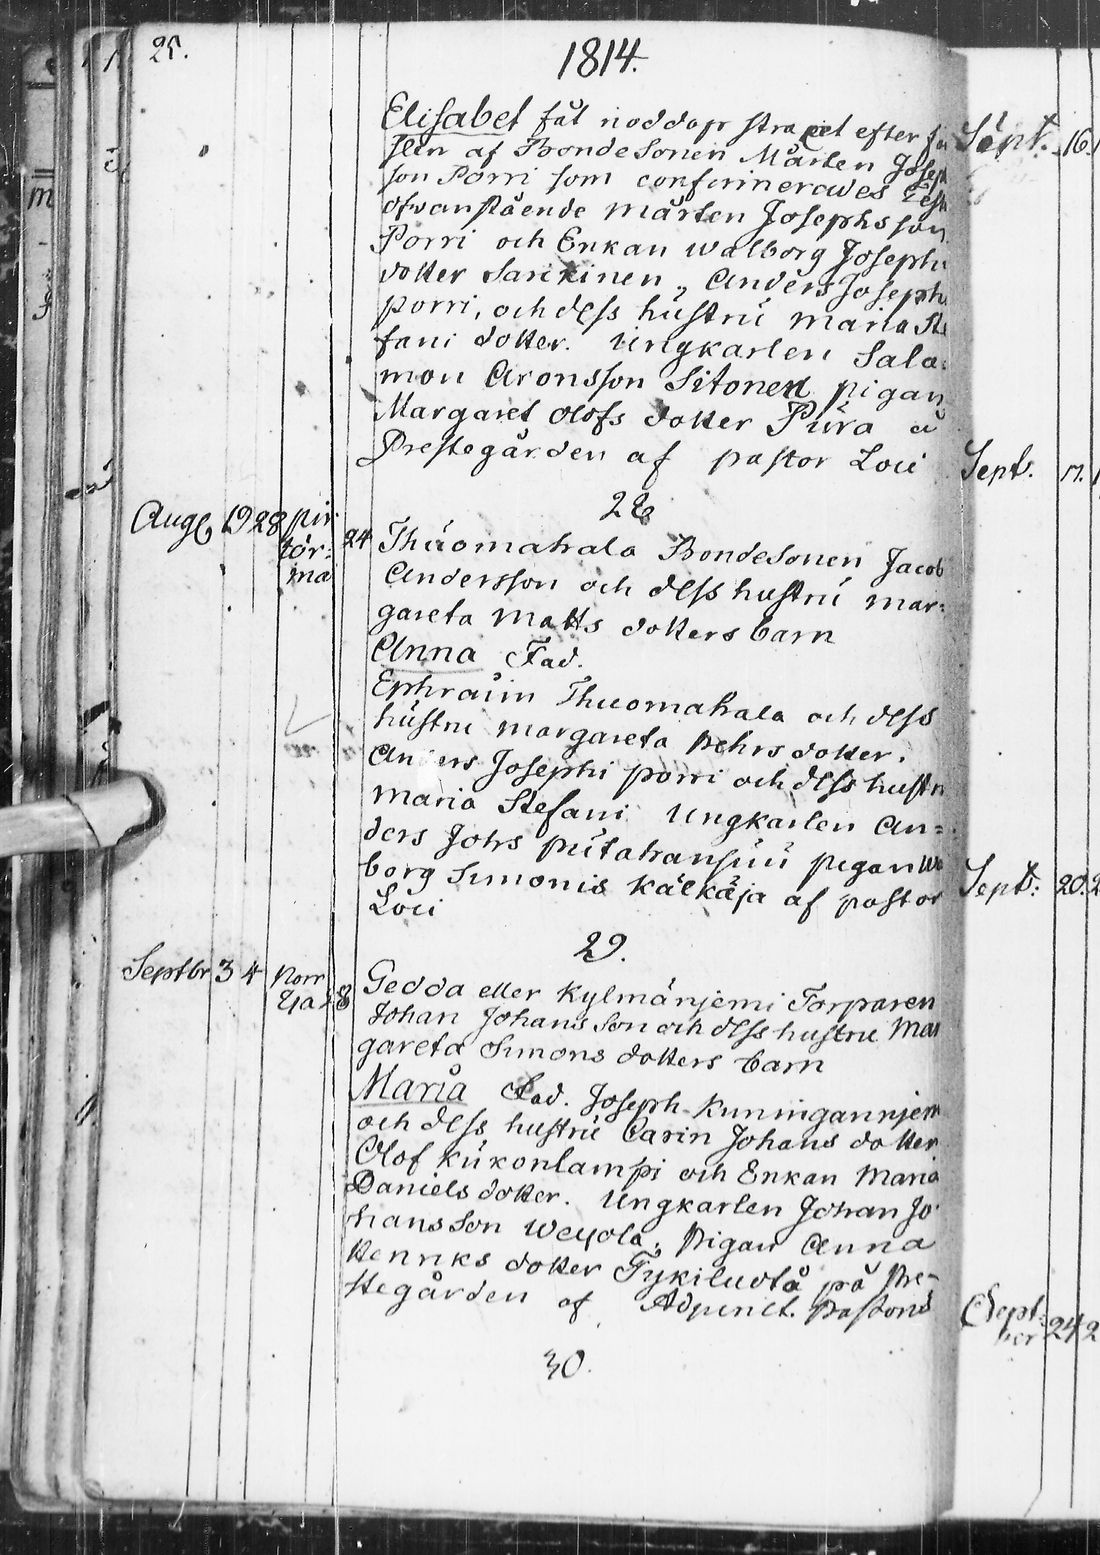 25.
1814.
Elisabet fåt noddop straxt efter
slen af Bondesonen Mårten Joseph
son Porri som confirmerades
ofvanstående Mårten Josephsson
Porri och Enkan Walborg Josephs
dotter Sarikinen, Anders Josephs
porri, och dess hustru Maria Ste
fani dotter. Ungkarlen Salo=
mon Aronsson Sitonen pigan
Margaret Olofs dotter Pura å
Prestegården af pastor Loci
28
Aug 19 28 pir 24 Thuomahala Bondesonen Jacob
tör= Andersson och dess hustru mar=
ma gareta Matts dotters barn
Anna Fad.
Ephraim Thuomahala och dess
hustru margareta Pehrs dotter.
Anders Josephi porri och dess hustru
Maria Stefani Ungkarlen An=
ders Johs putahansuu pigan Wa
borg Simonis Kälkäja af pastor
Loci
29.
Septbr 3 4 Norr 8 Gedda eller Kylmänjemi Torparen
Johan Johansson och dess hustru Mar
gareta Simons dotters barn
Maria Fad. Joseph Kuningannjemi
och dess hustru Carin Johans dotter
Olof Kukonlampi och Enkan Maria
Daniels dotter. Ungkarlen Johan Jo
hansson Weyola, Pigan Anna
Henriks dotter Tykiluoto på Pre-
stegården af Adjunct. Pastoris
30.
Sept. 16.
Sept. 17.
Sept: 20.
Sept=
ber 24